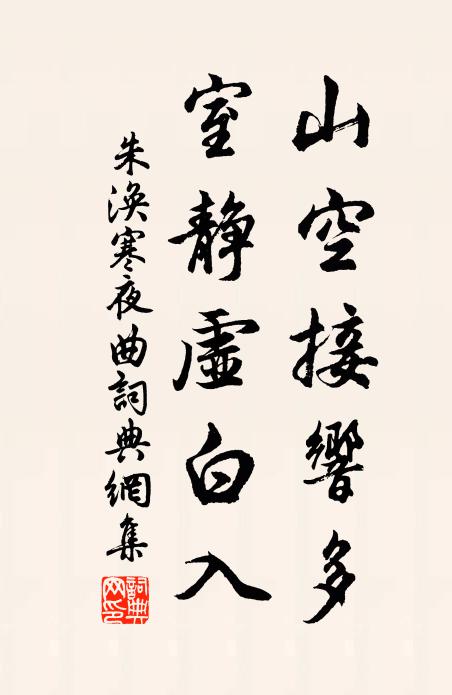 山空接響多
室靜虛白入
朱渙寒夜曲詞典網集
詞典網印